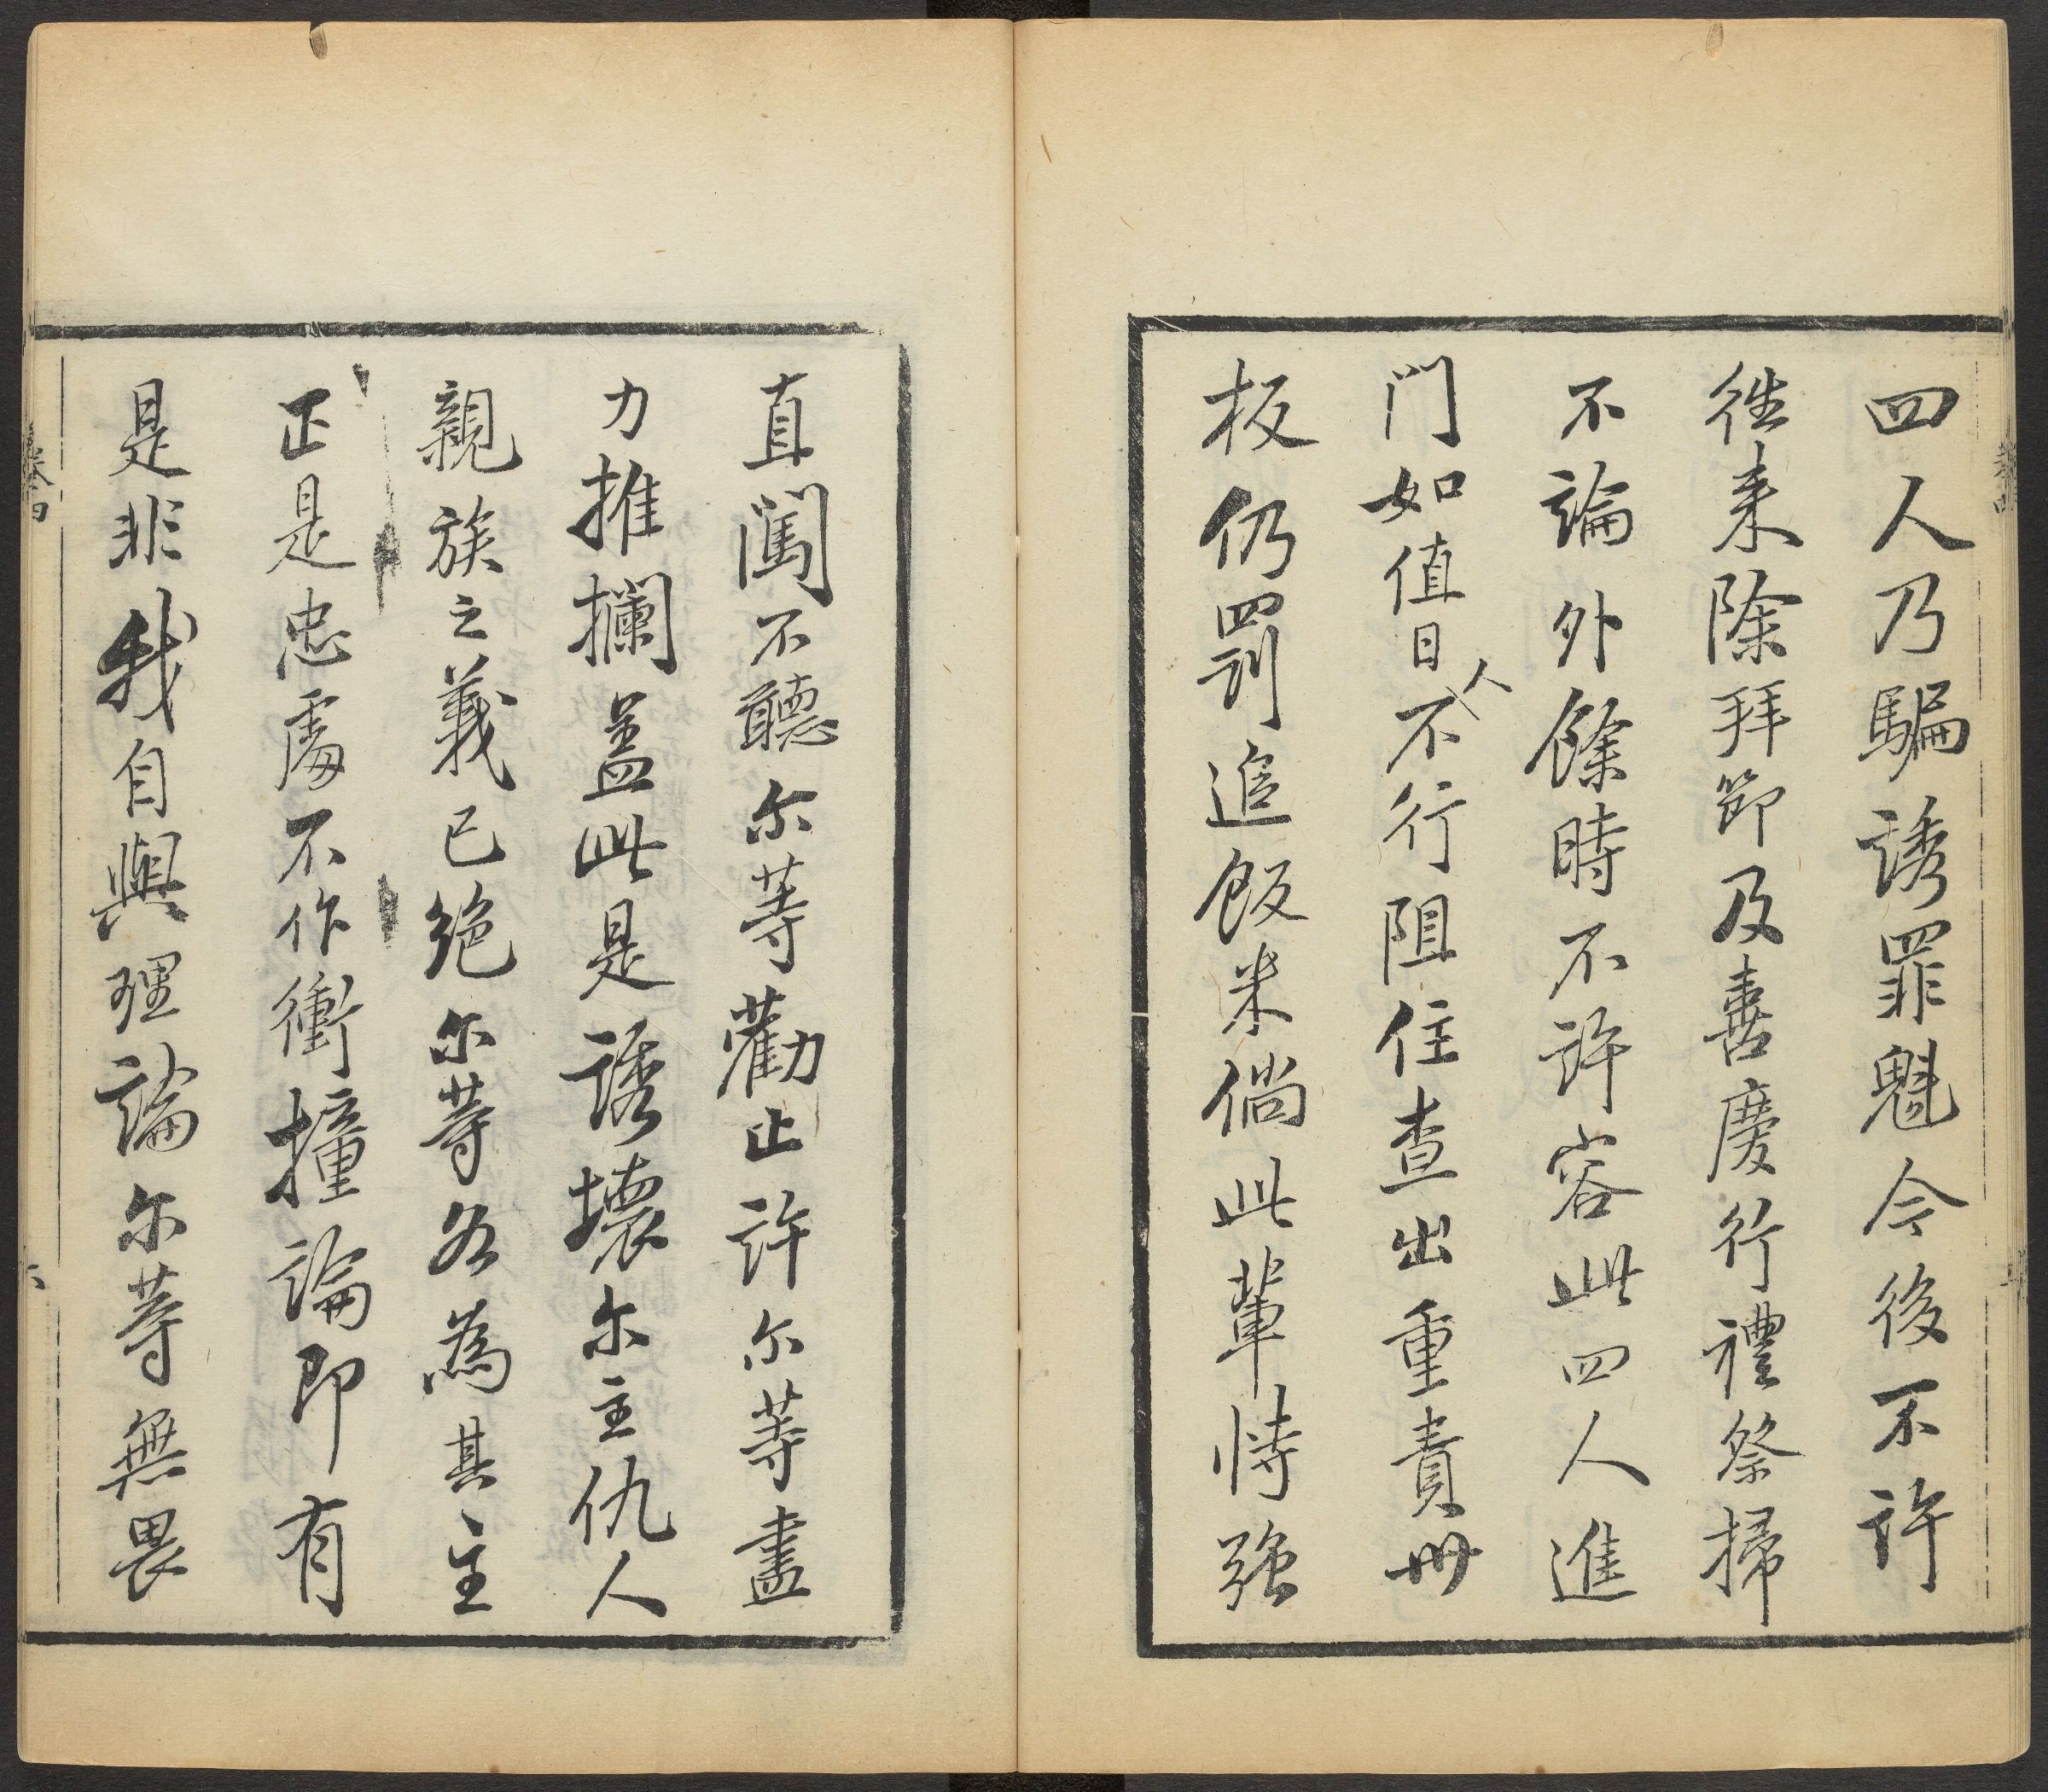 四人乃騙誘罪魁今後不許
徃来除拜節及喜慶行禮祭掃
不論外餘時不許容此四人進
門如值日人不行阻住查出重責卅
板仍罰追飯米倘此輩恃强
直闖不聽尔等勸止許尔等盡
力推攔盖此是誘壞尔主仇人
親族之義已絶尔等各為其主
正是忠處不作衝撞論即有
是非我自與理論尔等無畏
卷四